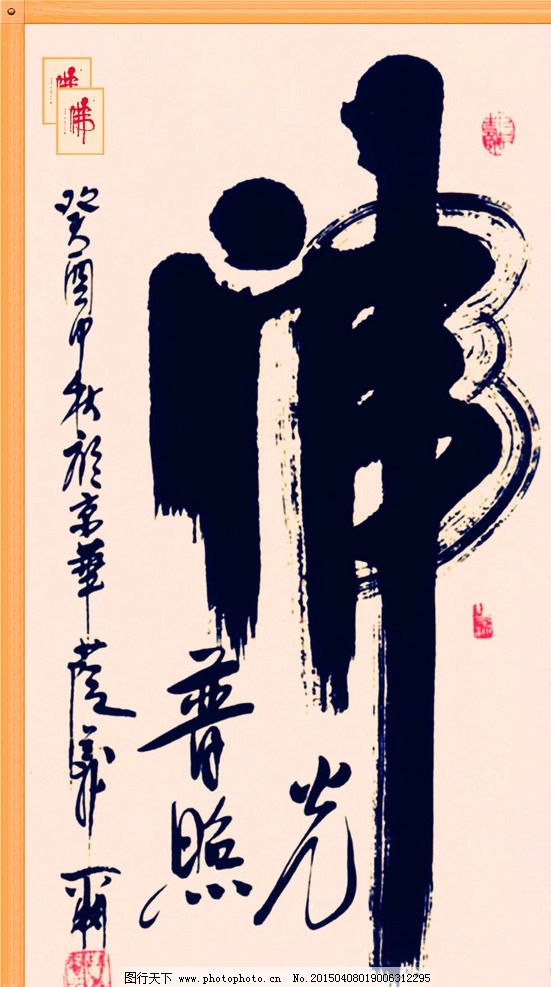 佛
光
普照
癸酉中秋於京華
佛
佛
图行天下 www.photophoto.cn No.20150408019006312295